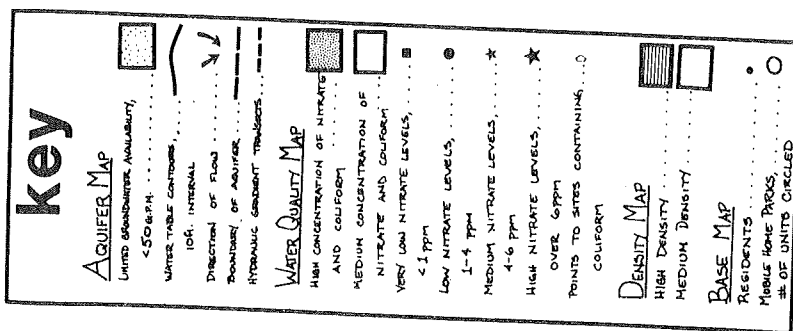 key
AQUIFER MAP
LIMITED GROUNDWATER AVAILABILITY,
<50 G.P.M. . . . . . . . . .
WATER TABLE CONTOURS, . . .
10ft. INTERVAL
DIRECTION OF FLOW . . . . .
BOUNDARY OF AQUIFER . . . .
HYDRAULIC GRADIENT TRANSECTS . .
WATER QUALITY MAP
HIGH CONCENTRATION OF NITRATE
AND COLIFORM . . . . . .
MEDIUM CONCENTRATION OF
NITRATE AND COLIFORM . . .
VERY LOW NITRATE LEVELS, . . . .
<1 ppm
LOW NITRATE LEVELS, . . . . . .
1-4 ppm
MEDIUM NITRATE LEVELS, . . . .
4-6 ppm
HIGH NITRATE LEVELS, . . . . .
OVER 6ppm
POINTS TO SITES CONTAINING, . . .
COLIFORM
DENSITY MAP
HIGH DENSITY . . . . . . . .
MEDIUM DENSITY . . . . . . .
BASE MAP
RESIDENTS . . . . . . . . . .
MOBILE HOME PARKS, . . . . . .
# OF UNITS CIRCLED